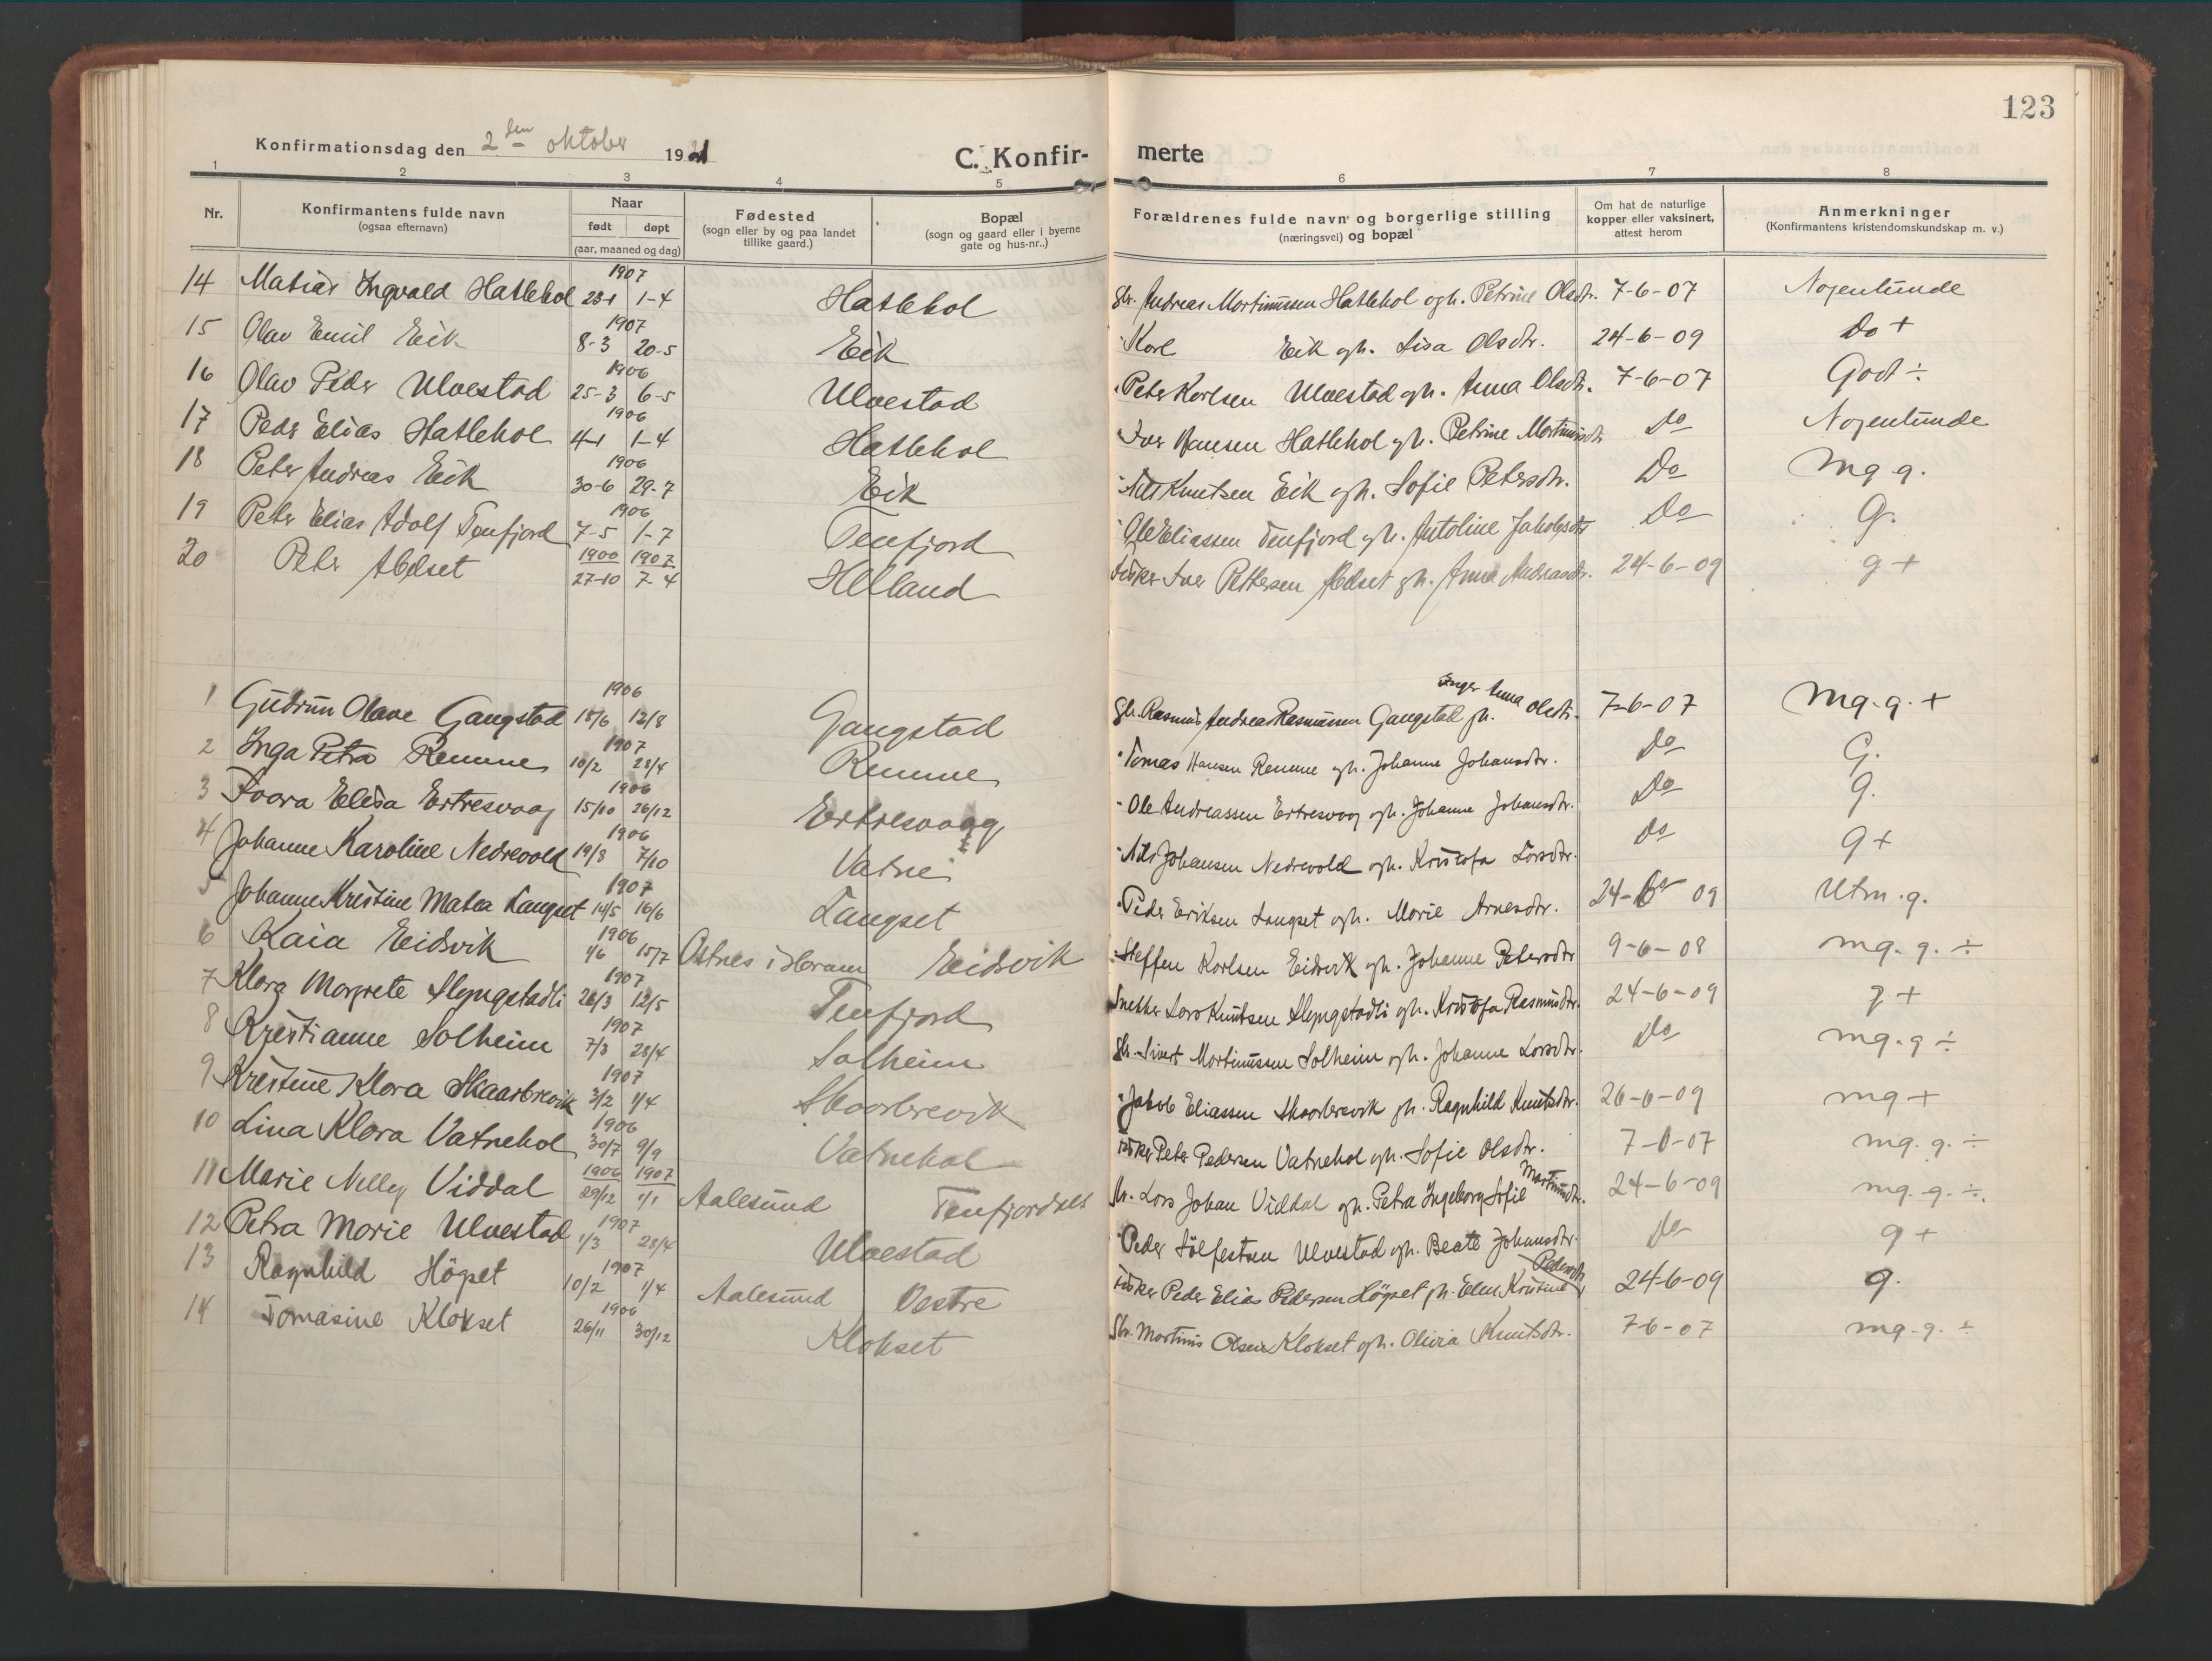 123
Konfirmationsdag den 2den oktober 1921
C. Konfir- merte
1 2 3 4 5 6 7 8
Nr. Konfirmantens fulde navn (ogsaa efternavn) Naar født døpt (aar, maaned og dag) Fødested (sogn eller by og paa landet tillike gaard.) Bopæl (sogn og gaard eller i byerne gate og hus-nr..) Forældrenes fulde navn og borgerlige stilling (næringsvei) og bopæl Om hat de naturlige kopper eller vaksinert, attest herom Anmerkninger (Konfirmantens kristendomskundskap m. v.)
14 Matias Ingvald Hatlehol 1907 23-1 1-4 Hatlehol Gbr. Andreas Martinussen Hatlehol ogh. Petrine Olsdtr. 7-6-07 Nogenlunde
15 Olav Emil Eik 1907 8-3 20-5 Eik " Karl Eik gh. Lisa Olsdtr. 24-6-09 Do +
16 Olav Peder Ulvestad 1906 25-3 6-5 Ulvestad " Peter Karlsen Ulvestad gh. Anna Olsdtr. 7-6-07 Godt ÷
17 Peder Elias Hatlehol 1906 4-1 1-4 Hatlehol " Iver Hansen Hatlehol gh. Petrine Martinusdtr Do Nogenlunde
18 Peter Andreas Eik 1906 30-6 29-7 Eik " Nils Knutsen Eik gh. Sofie Petersdtr. Do Mg g.
19 Peter Elias Adolf Tenfjord 1906 7-5 1-7 Tenfjord " Ole Eliassen Tenfjord gh. Antoline Jakobsdtr Do G.
20 Peter Abelset 1906 27-10 1907 7-4 Helland Fisker Iver Pettersen Abelset gh. Anna Andreasdtr. 24-6-09 g +
1 Gudrun Olave Gangstad 1906 18/6 12/8 Gangstad Gbr. Rasmus Andreas Rasmussen Gangstad gh. Inger Anna Olsdtr. 7-6-07 Mg. g. +
2 Inga Petra Remme 1907 10/2 28/4 Remme " Tomas Hansen Remme gh. Johanne Johansdtr. Do G.
3 Ivara Elisa Ertresvaag 1906 15/10 26/12 Ertresvaag " Ole Andreassen Ertresvaag gh. Johanne Johansdtr. Do g.
4 Johanne Karoline Nedrevold 1906 19/8 7/10 Vatne " Nils Johansen Nedrevold ogh. Kristofa Larsdtr. Do g +
5 Johanne Kristine Matea Langset 1907 14/5 16/6 Langset " Peder Eriksen Langset ogh. Marie Arnesdtr. 24-6-09 Utm. g.
6 Kaia Eidsvik 1906 1/6 15/7 Østnes i Haram Eidsvik " Steffen Karlsen Eidsvik gh. Johanne Petersdtr 9-6-08 mg. g. ÷
7 Klara Margrete Slyngstadli 1907 26/3 12/5 Tenfjord Snekker Lars Knutsen Slyngstadli gh. Kristofa Rasmusdtr. 24-6-09 g +
8 Kristianne Solheim 1907 7/3 28/4 Solheim Gbr. Sivert Martinussen Solheim ogh. Johanne Larsdtr. Do mg. g ÷
9 Kristine Klara Skaarbrevik 1907 3/2 1/4 Skaarbrevik " Jakob Eliassen Skaarbrevik gh. Ragnhild Knutsdtr. 26-6-09 mg +
10 Lina Klara Vatnehol 1906 30/7 9/9 Vatnehol Fisker Peter Pedersen Vatnehol gh. Sofie Olsdtr. 7-6-07 mg. g. ÷
11 Marie Nelley Viddal 1906 29/12 1907 1/1 Aalesund Tenfjordals Lars Johan Viddal gh. Petra Ingeborg Sofie Martinusdtr. 24-6-09 mg. g. ÷.
12 Petra Marie Ulvestad 1907 1/3 28/4 Ulvestad " Peder Sølfestsen Ulvestad gh. Beate Johansdtr. Do g +
13 Ragnhild Høgset 1907 10/2 1/4 Aalesund Vestre Fisker Peder Elias Pedersen Høgset gh. Elen Kristine Pedersdtr 24-6-09 g.
14 Tomasine Klokset 1906 26/11 30/12 Klokset Gbr. Martinus Olsen Klokset gh. Olivia Knutsdtr. 7-6-07 mg. g. ÷